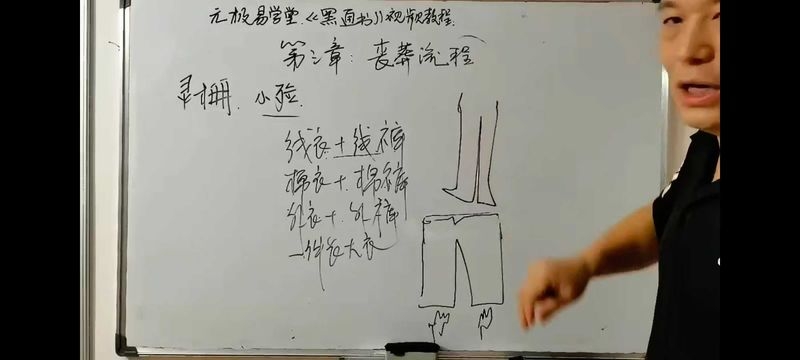 元极易学堂.《黑通书》视频教程.
第三章：丧葬流程
灵棚. 小殓.
线衣+线裤
棉衣+棉裤
外衣+外裤
一件长大衣